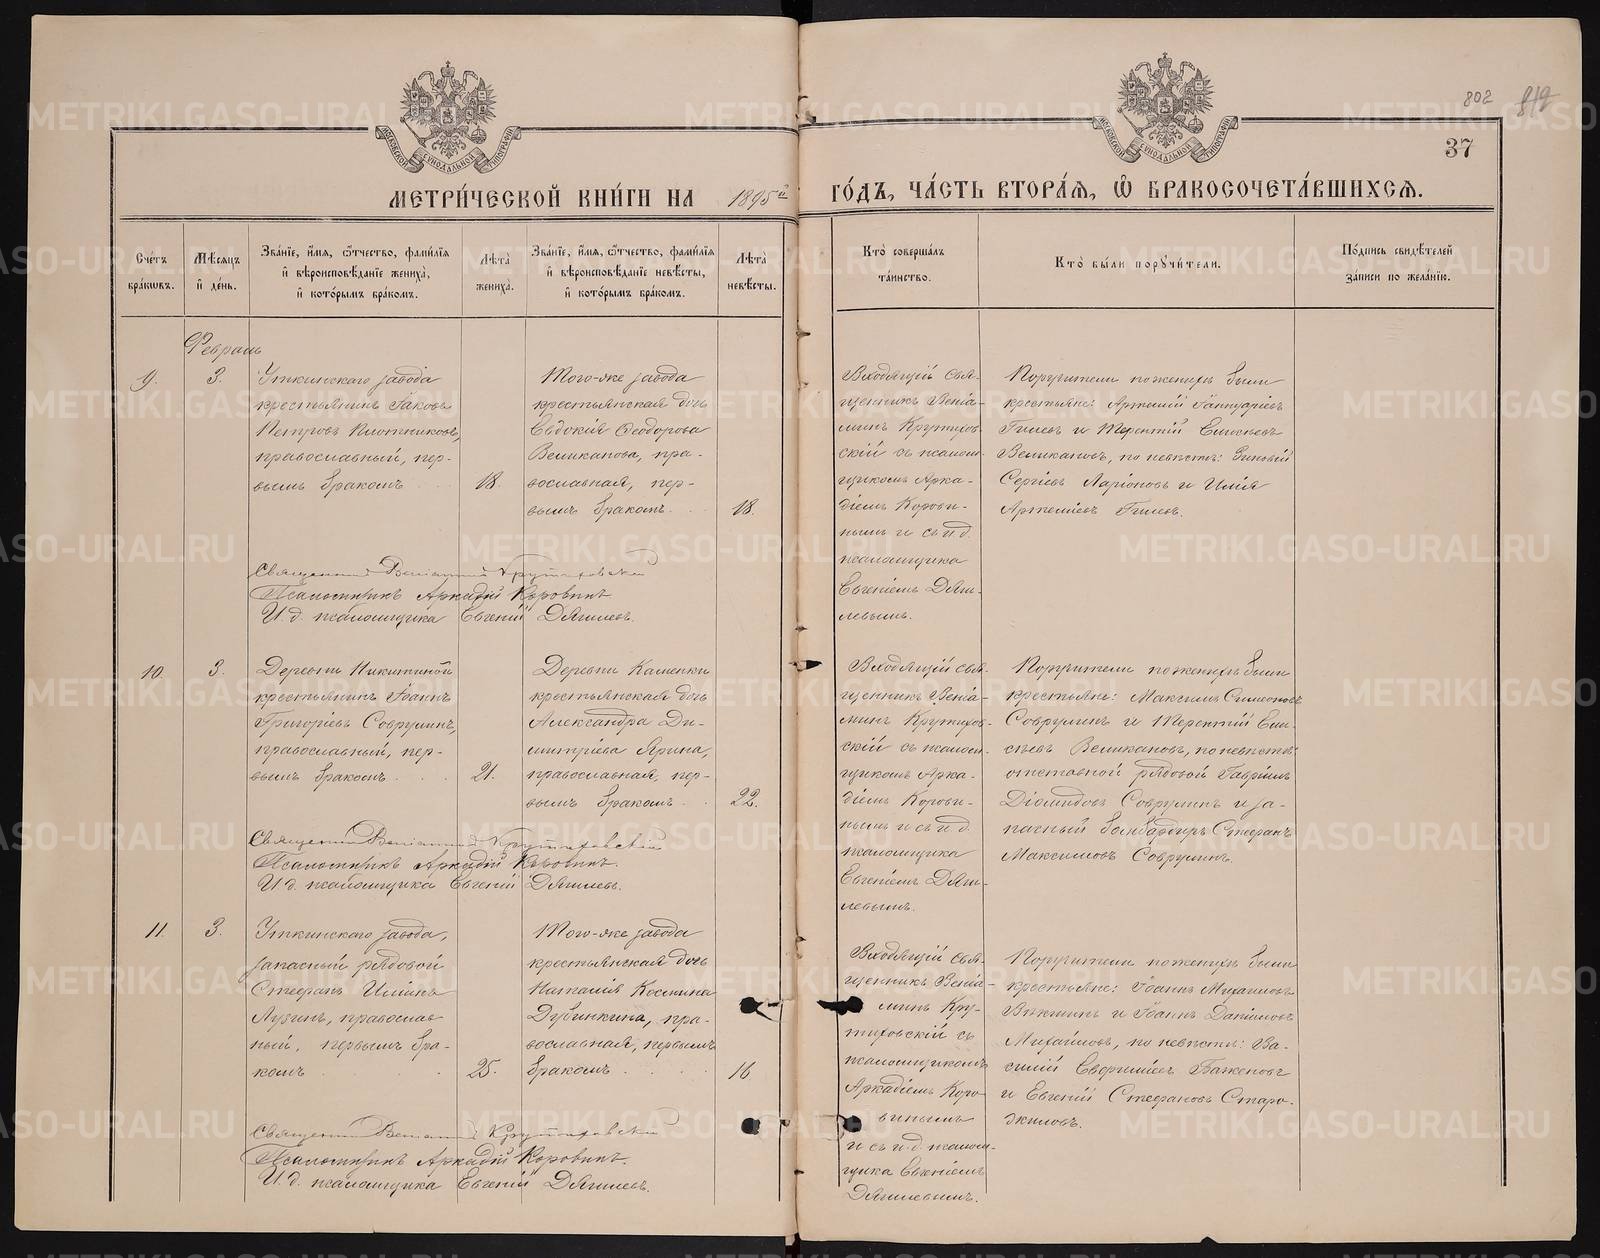 802 812
37
МОСКОВСКОЙ СѴНОДАЛЬНОЙ ТИПОГРАФІИ
МОСКОВСКОЙ СѴНОДАЛЬНОЙ ТИПОГРАФІИ
МЕТРИ́ЧЕСКОЙ КНИ́ГИ НА 1895й ГО́ДЪ, ЧА́СТЬ ВТОРА́Я, Ѽ БРАКОСОЧЕТА́ВШИХСЯ.
Сче́тъ бра́кѡвъ.
Мѣ́сяцъ и҆ де́нь.
Зва́нїе, и҆́мя, ѻ҆́тчество, фами́лїѧ и҆ вѣроисповѣ́данїе жениха̀, и҆ кото́рымъ бра́комъ.
Лѣ́та жениха̀.
Зва́нїе, и҆́мя, ѻ҆́тчество, фами́лїѧ и҆ вѣроисповѣ́данїе невѣ́сты, и҆ кото́рымъ бра́комъ.
Лѣ́та невѣ́сты.
Кто̀ соверша́лъ та́инство.
Кто̀ бы́ли порꙋчи́тели.
По́дпись свидѣ́телей за́писи по жела́нїю.
Февраль
9.
3.
Уткинскаго завода
крестьянинъ Іаковъ
Петровъ Плотниковъ,
православный, пер-
вымъ бракомъ
18.
Того-же завода
крестьянская дочь
Евдокія Ѳеодорова
Великанова, пра-
вославная, пер-
вымъ бракомъ
18.
Входящій свя-
щенникъ Веніа-
минъ Крутихов-
скій съ псалом-
щикомъ Арка-
діемъ Корови-
нымъ и съ и.д.
псаломщика
Евгеніемъ Дяги-
левымъ.
Поручители по женихѣ были
крестьяне: Артемій Іаннуаріевъ
Гилевъ и Терентій Елисѣевъ
Великановъ, по невѣстѣ: Зиновій
Сергіевъ Ларіоновъ и Илія
Артеміевъ Гилевъ.
Священникъ Веніаминъ Крутиховскій
Псаломщикъ Аркадій Коровинъ
И.д. псаломщика Евгеній Дягилевъ.
10.
3.
Деревни Никитиной
крестьянинъ Іоаннъ
Григоріевъ Соврулинъ,
православный, пер-
вымъ бракомъ
21.
Деревни Каменки
крестьянская дочь
Александра Ди-
митріева Ярина,
православная, пер-
вымъ бракомъ
22.
Входящій свя-
щенникъ Веніа-
минъ Крутихов-
скій съ псалом-
щикомъ Арка-
діемъ Корови-
нымъ и съ и.д.
псаломщика
Евгеніемъ Дяги-
левымъ.
Поручители по женихѣ были
крестьяне: Максимъ Симеоновъ
Соврулинъ и Терентій Ели-
сѣевъ Великановъ, по невѣстѣ:
отставной рядовой Гавріилъ
Діомидовъ Соврулинъ и за-
пасный бомбардиръ Стефанъ
Максимовъ Соврулинъ.
Священникъ Веніаминъ Крутиховскій
Псаломщикъ Аркадій Коровинъ.
И.д. псаломщика Евгеній Дягилевъ.
11.
3.
Уткинскаго завода,
запасный рядовой
Стефанъ Иліинъ
Лузинъ, православ
ный, первымъ бра-
комъ
25.
Того-же завода
крестьянская дочь
Наталія Космина
Дубинкина, пра-
вославная, первымъ
бракомъ
16.
Входящій свя-
щенникъ Веніа-
минъ Кру-
тиховскій съ
псаломщикомъ
Аркадіемъ Коро-
винымъ
и съ и.д. псалом-
щика Евгеніемъ
Дягилевымъ.
Поручители по женихѣ были
крестьяне: Іоаннъ Михаиловъ
Вяткинъ и Іоаннъ Даніиловъ
Михайловъ, по невѣстѣ: Ва-
силій Евфиміевъ Баженовъ
и Евгеній Стефановъ Старо-
жиловъ.
Священникъ Веніаминъ Крутиховскій
Псаломщикъ Аркадій Коровинъ.
И.д. псаломщика Евгеній Дягилевъ.
METRIKI.GASO-URAL.RU